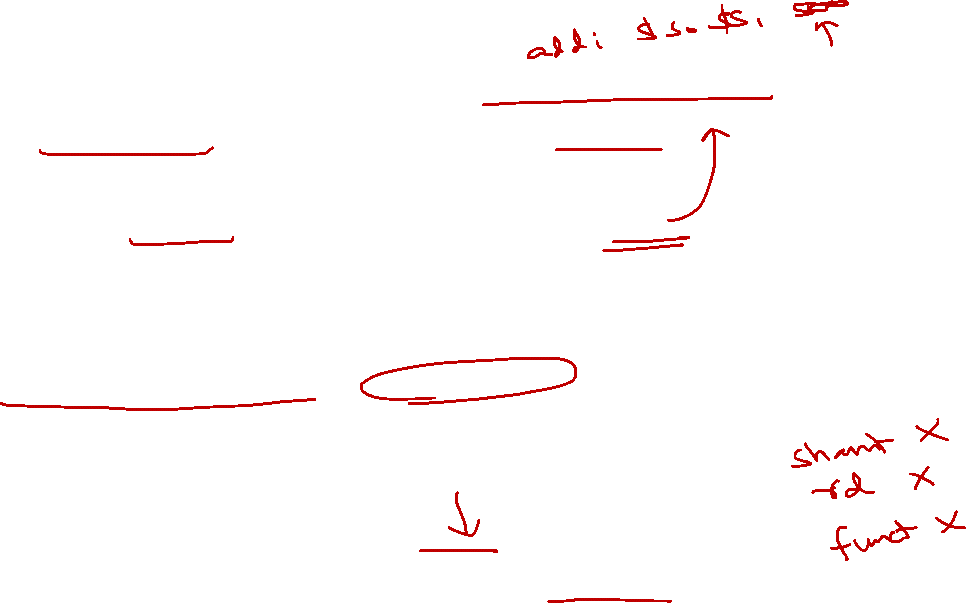 addi $s0 $s1
shamt X
rd X
funct X